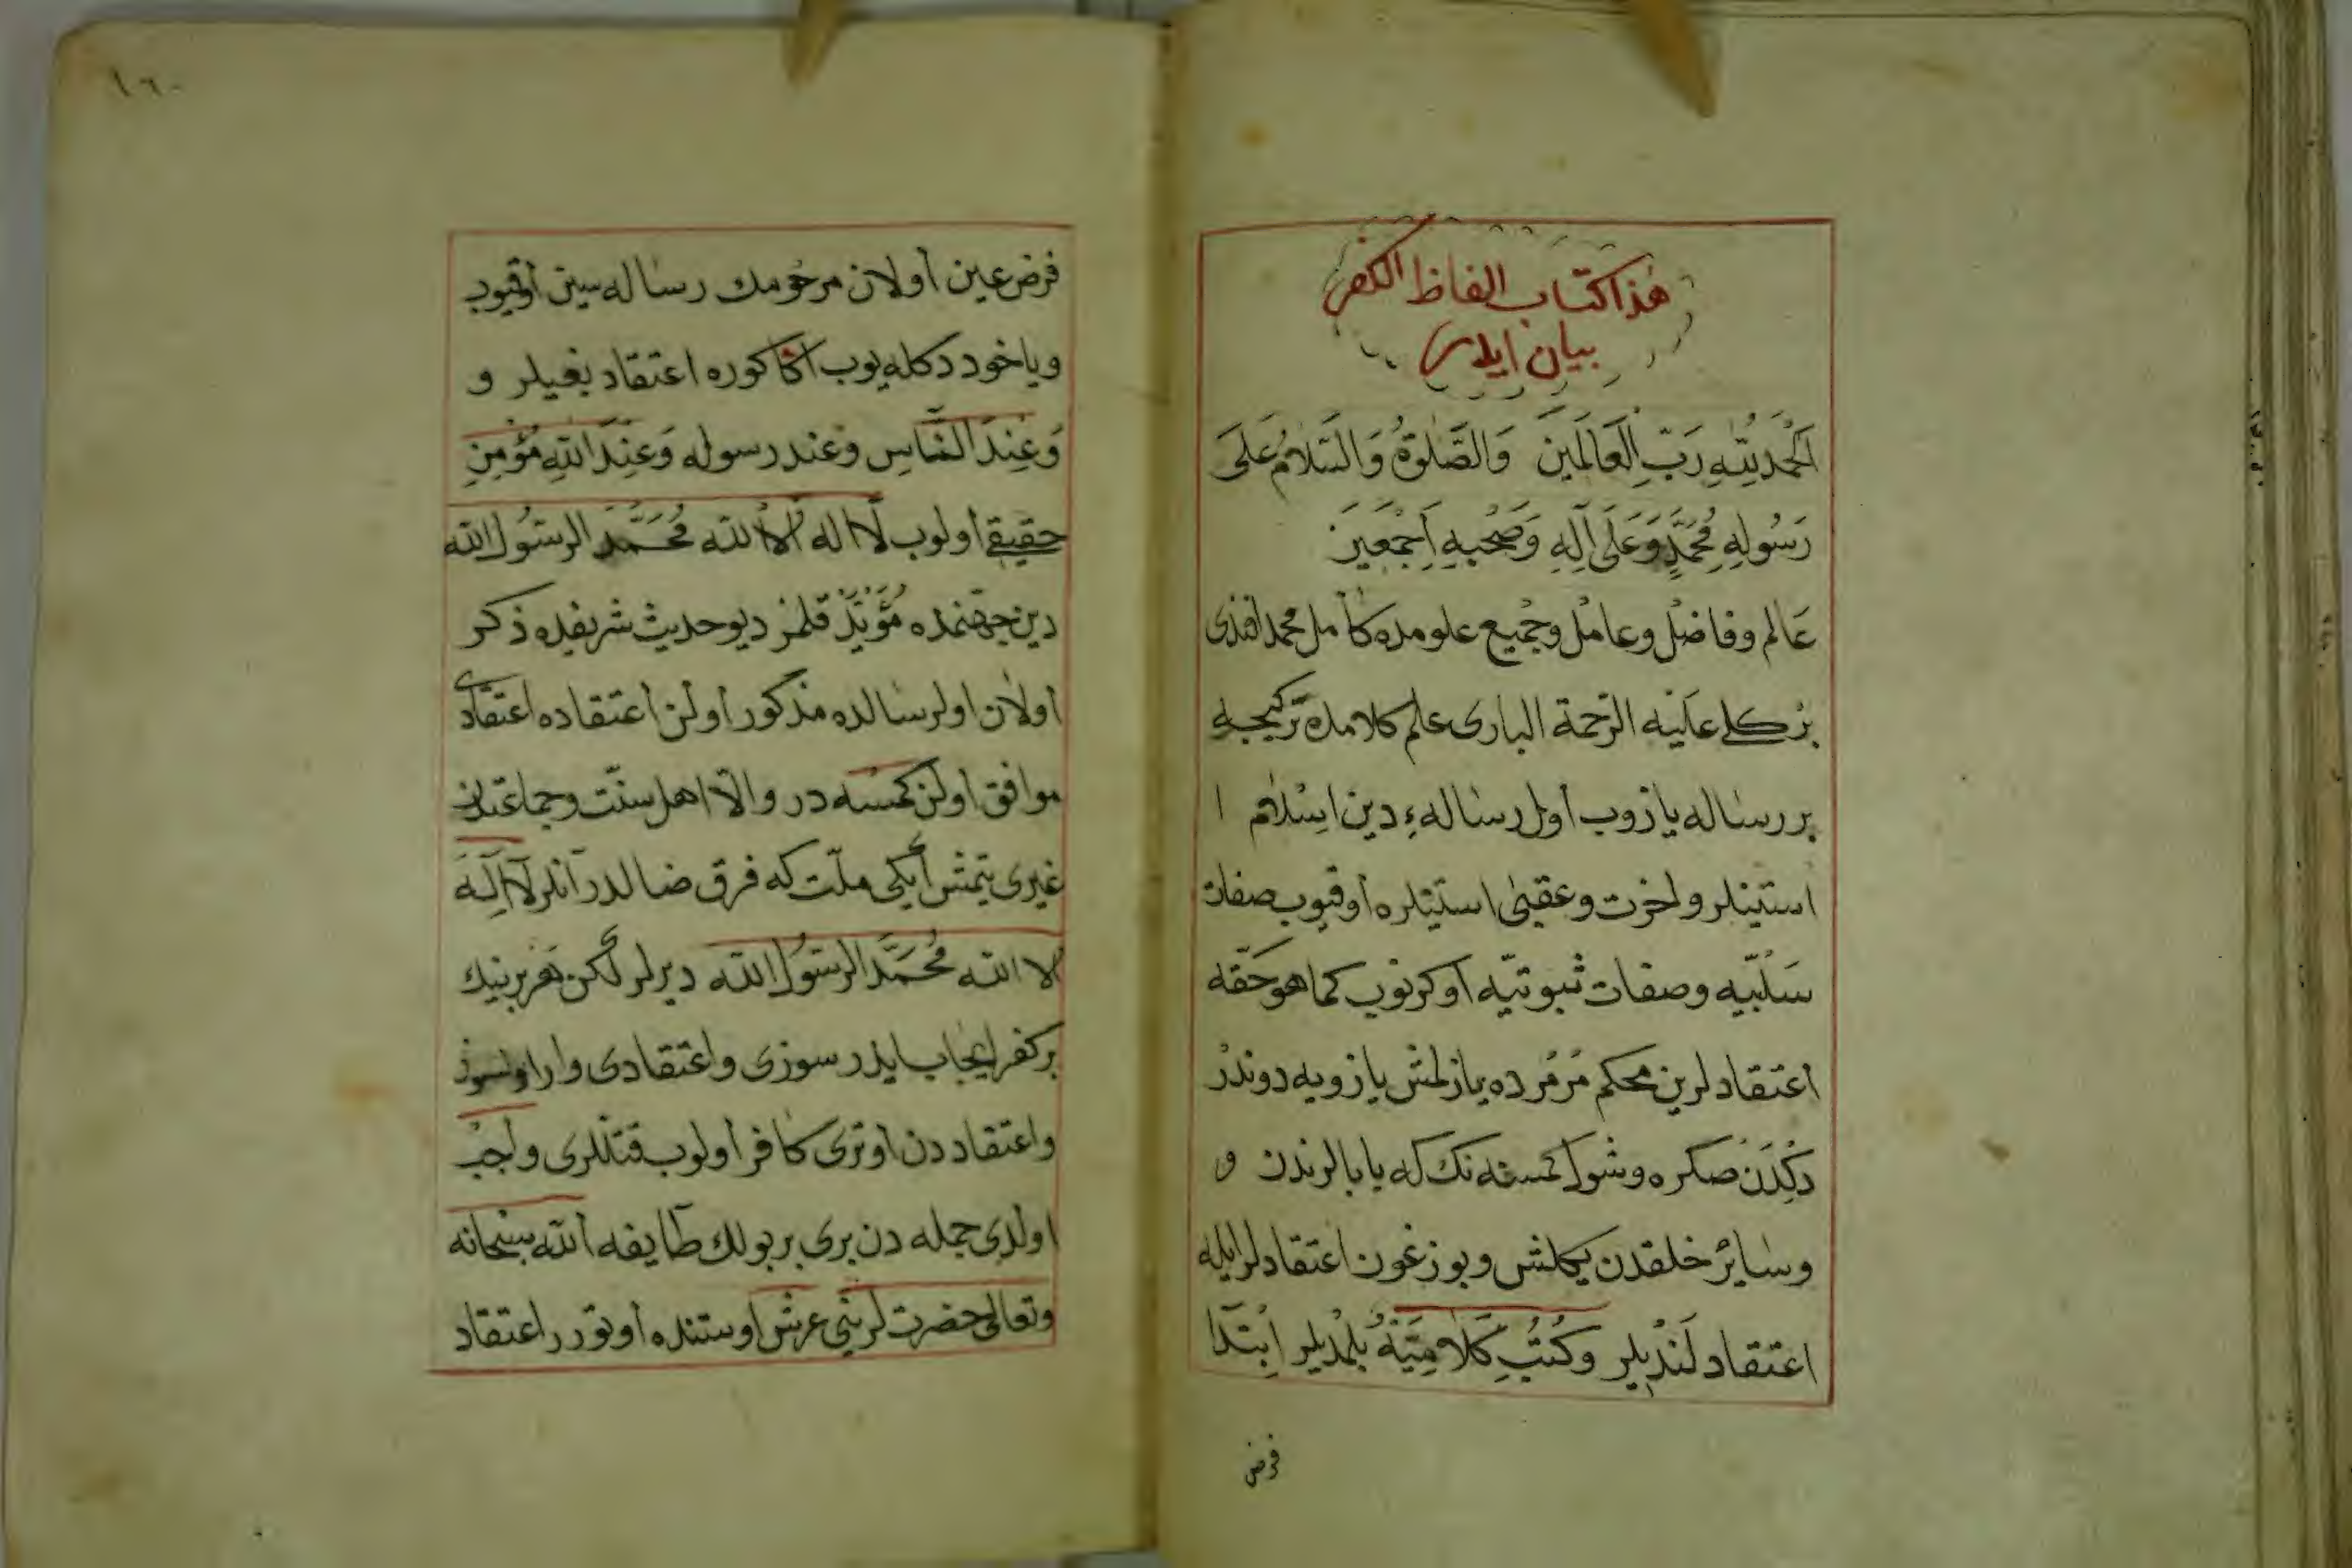 هذا كتاب الفاظ الكفر
بيان ايلر
اَلْحَمْدُ لِلّٰهِ رَبِّ الْعَالَمِينَ وَالصَّلٰوةُ وَالسَّلَامُ عَلَى
رَسُولِهِ مُحَمَّدٍ وَعَلَى آلِهِ وَصَحْبِهِ اَجْمَعِينَ
عالم وفاضل وعامل وجميع علومده كامل محمد افندى
بركلى عليه الرحمة البارى علم كلامده تركيجه
بر رساله يازوب اول رسالهء دين اسلام ا
استينلر واخرت وعقبى استينلره اوقيوب صفات
سلبيّه وصفات ثبوتيّه اوكرنوب كما هو حقّه
اعتقادلرين محكم مرمرده يازلمش يازويه دوندر
دكدن صكره وشول كمسنه نك كه يا بالرندن و
وسائر خلقدن يكلمش وبوزغون اعتقادلر ايله
اعتقاد لنديلر وكتب كلاميّة بلمديلر ابتدا
فرض
١٦٠
فرض عين اولان مرحومك رساله سين اوقيوب
وياخود دكله يوب اكا كوره اعتقاد بغيلر و
وَعِنْدَ النَّاسِ وعند رسوله وَعِنْدَ اللّٰهِ مُؤْمِنِ
حقيقى اولوب لا اله الا الله مُحَمَّد الرسُول الله
دين جهنمده مؤبّد قلمز ديو حديث شريفده ذكر
اولان اول رساله ده مذكور اولن اعتقاده اعتقادى
موافق اولن كمسنه در والّا اهل سنّت وجماعتدن
غيرى يتمش ايكى ملّت كه فرق ضالدر آنلر لَا اِلٰهَ
الا الله مُحَمَّد الرسُول الله ديرلر لكن هر برينك
بر كفر ايجاب ايدر سوزى واعتقادى وار اول سوز
واعتقاددن اوترى كافر اولوب قتللرى واجب
اولدى جمله دن برى بر بولك طايفه الله سبحانه
وتعالى حضرتلرينى عرش اوستنده اوتورر اعتقاد